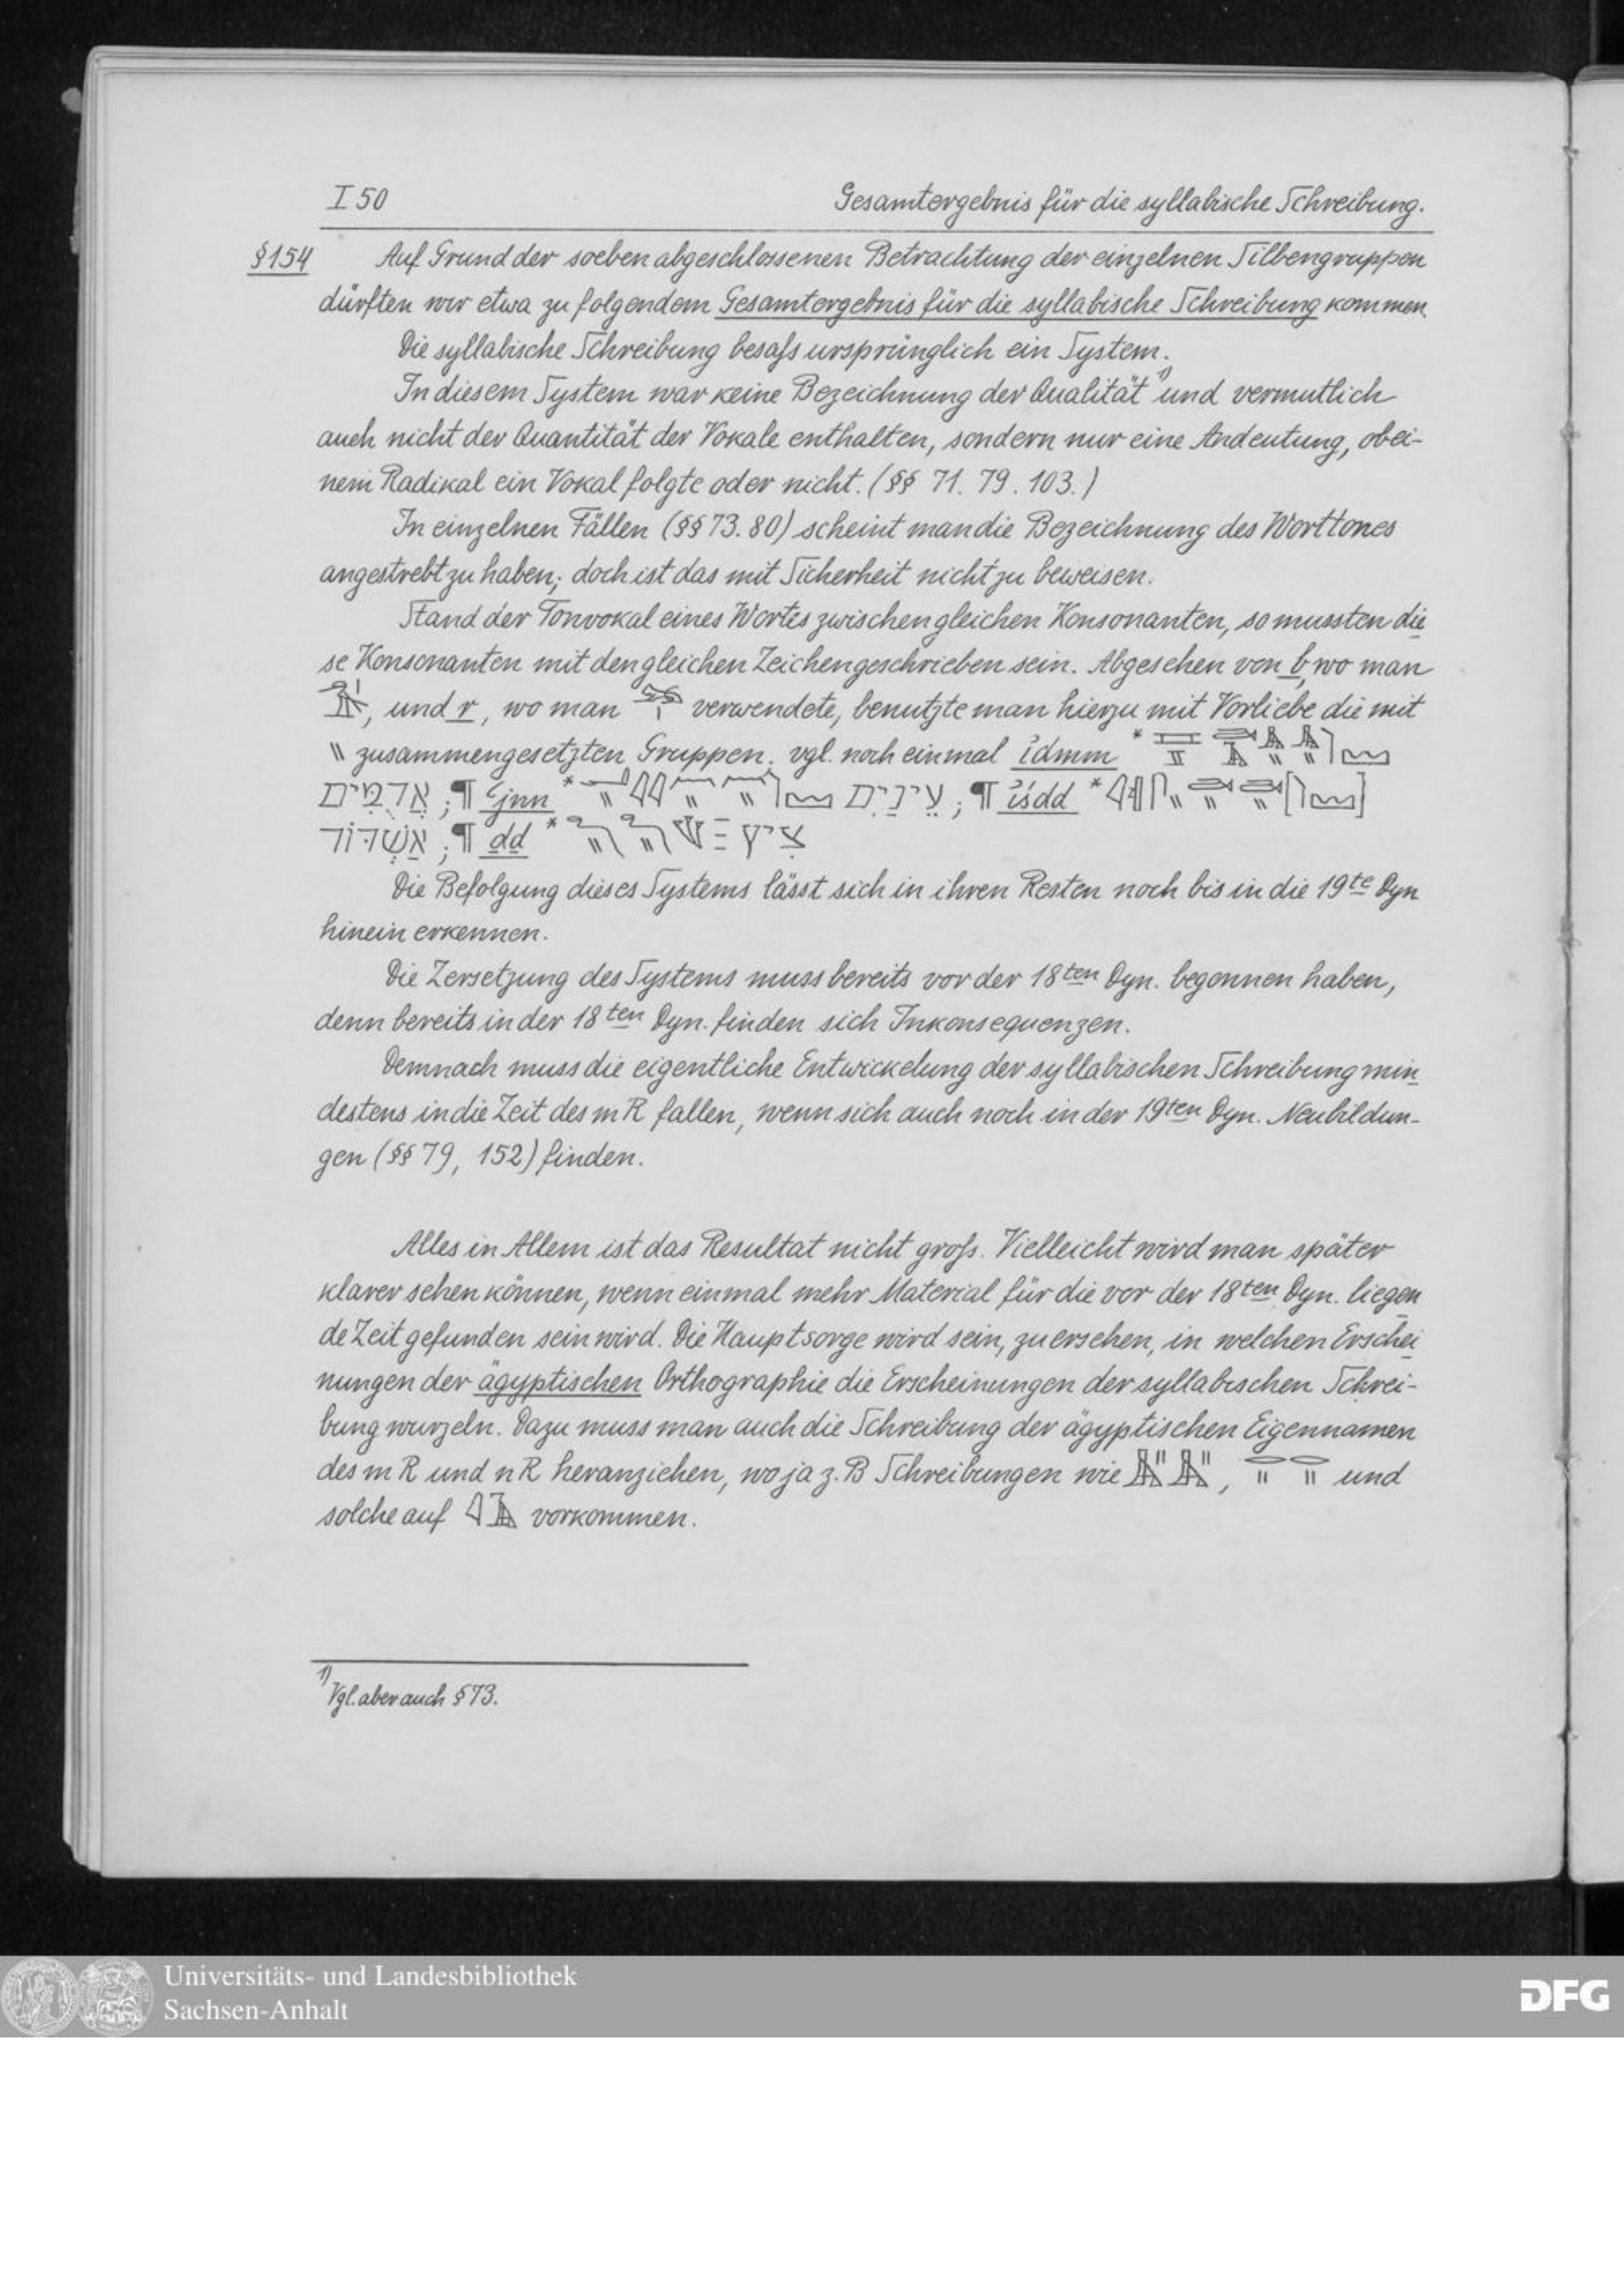 I 50 Gesamtergebnis für die syllabische Schreibung.
§154 Auf Grund der soeben abgeschlossenen Betrachtung der einzelnen Silbengruppen
dürften wir etwa zu folgendem Gesamtergebnis für die syllabische Schreibung kommen.
Die syllabische Schreibung besaß ursprünglich ein System.
In diesem System war keine Bezeichnung der Qualität 1) und vermutlich
auch nicht der Quantität der Vokale enthalten, sondern nur eine Andeutung, ob ei-
nem Radikal ein Vokal folgte oder nicht. (§§ 71. 79. 103.)
In einzelnen Fällen (§§ 73. 80) scheint man die Bezeichnung des Worttones
angestrebt zu haben; doch ist das mit Sicherheit nicht zu beweisen.
Stand der Tonvokal eines Wortes zwischen gleichen Konsonanten, so mussten die
se Konsonanten mit den gleichen Zeichen geschrieben sein. Abgesehen von b, wo man
, und r, wo man verwendete, benutzte man hierzu mit Vorliebe die mit
\\ zusammengesetzten Gruppen; vgl. noch einmal idmm *
אֲדֻמִּים ; ¶ ꜥjnn * עֵינַיִם ; ¶ iśdd * [ ]
אַשְׁדּוֹד ; ¶ ḏḏ * צִיץ
Die Befolgung dieses Systems lässt sich in ihren Resten noch bis in die 19te Dyn
hinein erkennen.
Die Zersetzung des Systems muss bereits vor der 18ten Dyn. begonnen haben,
denn bereits in der 18ten Dyn. finden sich Inkonsequenzen.
Demnach muss die eigentliche Entwickelung der syllabischen Schreibung min
destens in die Zeit des mR fallen, wenn sich auch noch in der 19ten Dyn. Neubildun-
gen (§§ 79, 152) finden.
Alles in Allem ist das Resultat nicht groß. Vielleicht wird man später
klarer sehen können, wenn einmal mehr Material für die vor der 18ten Dyn. liegen
de Zeit gefunden sein wird. Die Hauptsorge wird sein, zu ersehen, in welchen Erschei
nungen der ägyptischen Orthographie die Erscheinungen der syllabischen Schrei-
bung wurzeln. Dazu muss man auch die Schreibung der ägyptischen Eigennamen
des mR und nR heranziehen, wo ja z.B Schreibungen wie , und
solche auf vorkommen.
1) Vgl. aber auch § 73.
Universitäts- und Landesbibliothek
Sachsen-Anhalt
DFG